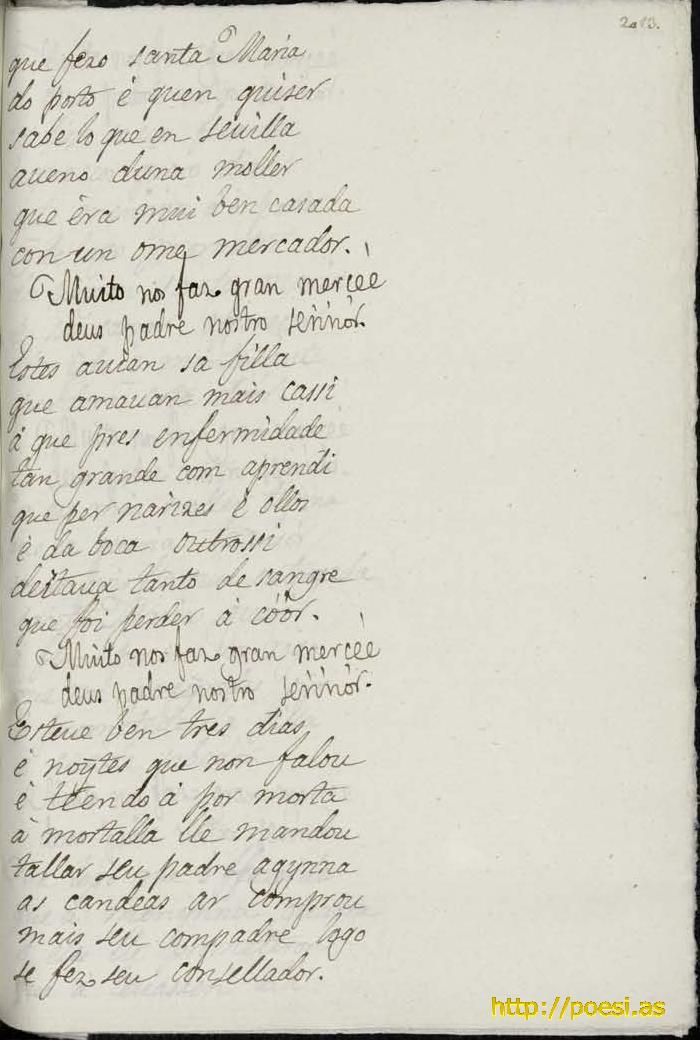 que fezo santa Maria
do porto è quen quiser
sabelo que en seuilla
aueno duna moller
que èra mui ben casada
con un ome mercador.
Muito nos faz gran mercèè
deus padre nostro sennor.
Estes auian sa filla
que amauan mais cassi
à que pres enfermidade
tan grande com aprendi
que per narizes è ollos
è da boca outrossi
deitaua tanto de sangre
que foi perder à cóór.
Muito nos faz gran mercèè
deus padre nostro sennor.
Esteue ben tres dias
è noytes que non falou
è tẽendo à por morta
à mortalla lle mandou
tallar seu padre agynna
as candeas ar comprou
mais seu compadre logo
se fez seu consellador.
http://poesi.as